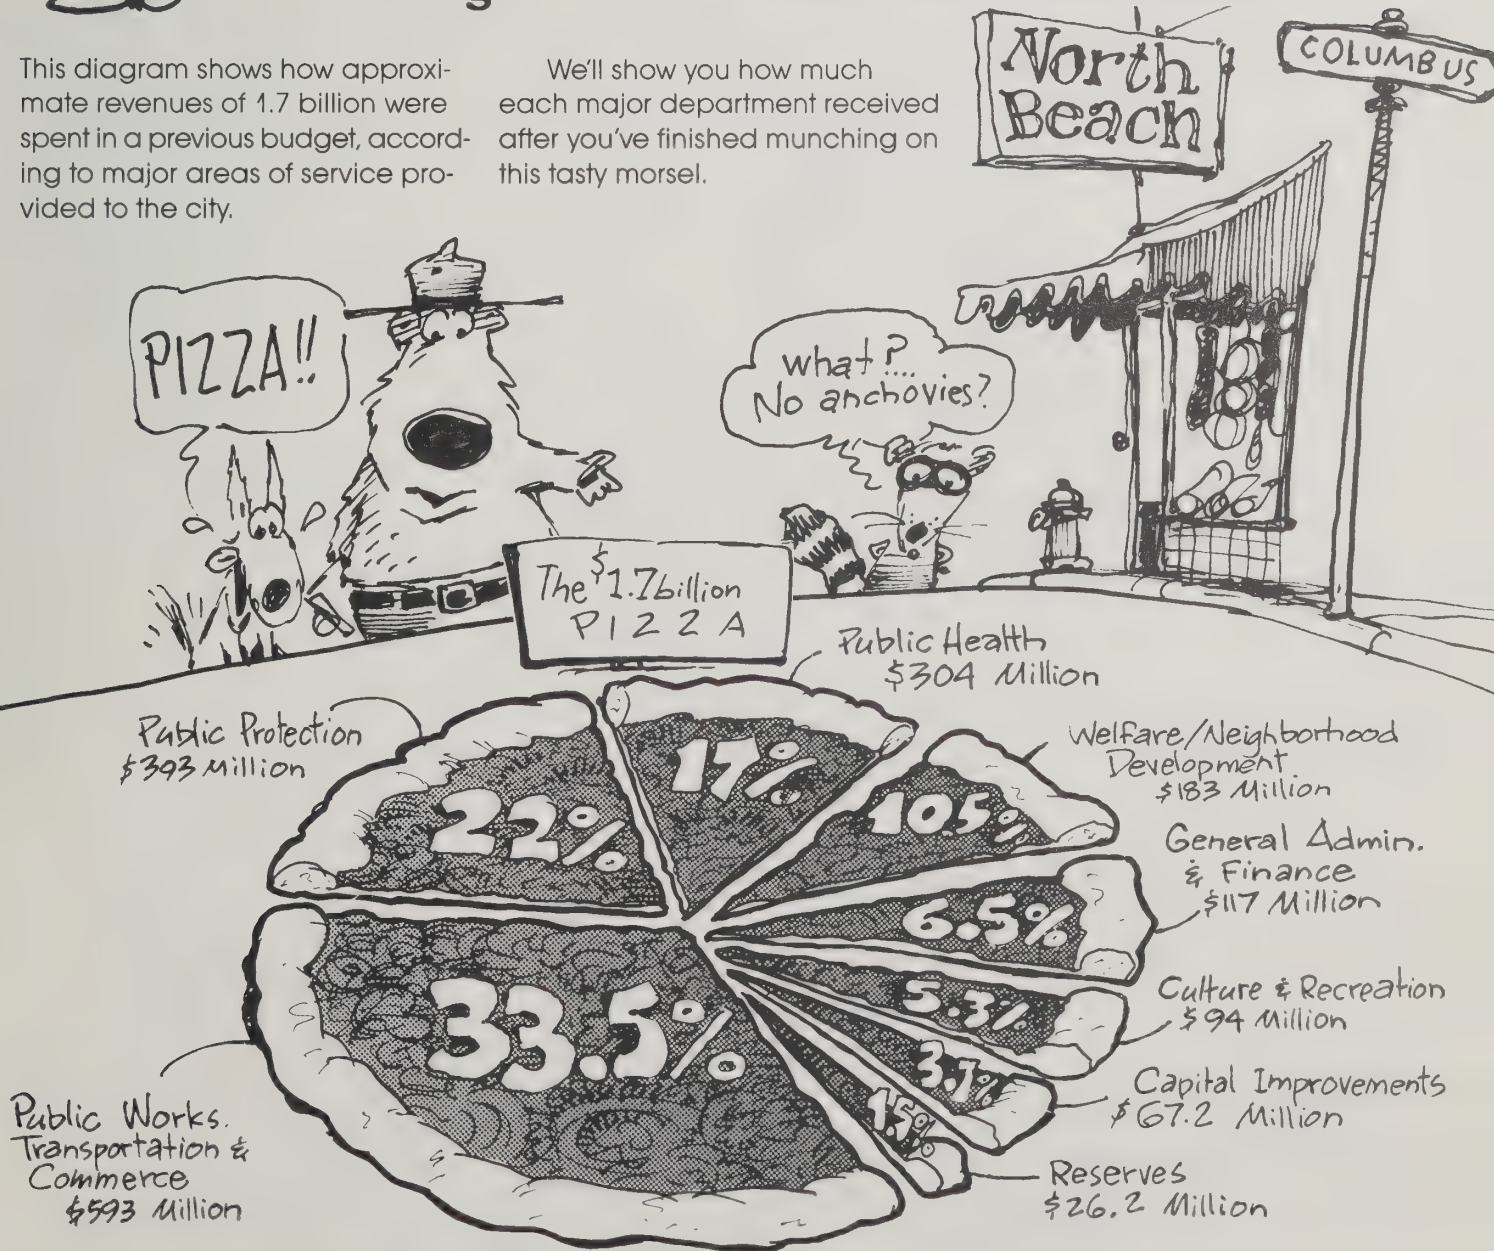 This diagram shows how approxi-
mate revenues of 1.7 billion were
spent in a previous budget, accord-
ing to major areas of service pro-
vided to the city.
We'll show you how much
each major department received
after you've finished munching on
this tasty morsel.
North
Beach
COLUMBUS
PIZZA!!
what?...
No anchovies?
The $1.7billion
PIZZA
Public Health
$304 Million
Public Protection
$393 Million
Welfare/Neighborhood
Development.
$183 Million
General Admin.
& Finance
$117 Million
Culture & Recreation
$94 Million
Capital Improvements
$67.2 Million
Reserves
$26.2 Million
Public Works.
Transportation &
Commerce
$593 Million
22%
17%
10.5%
6.5%
5.3%
3.7%
1.5%
33.5%